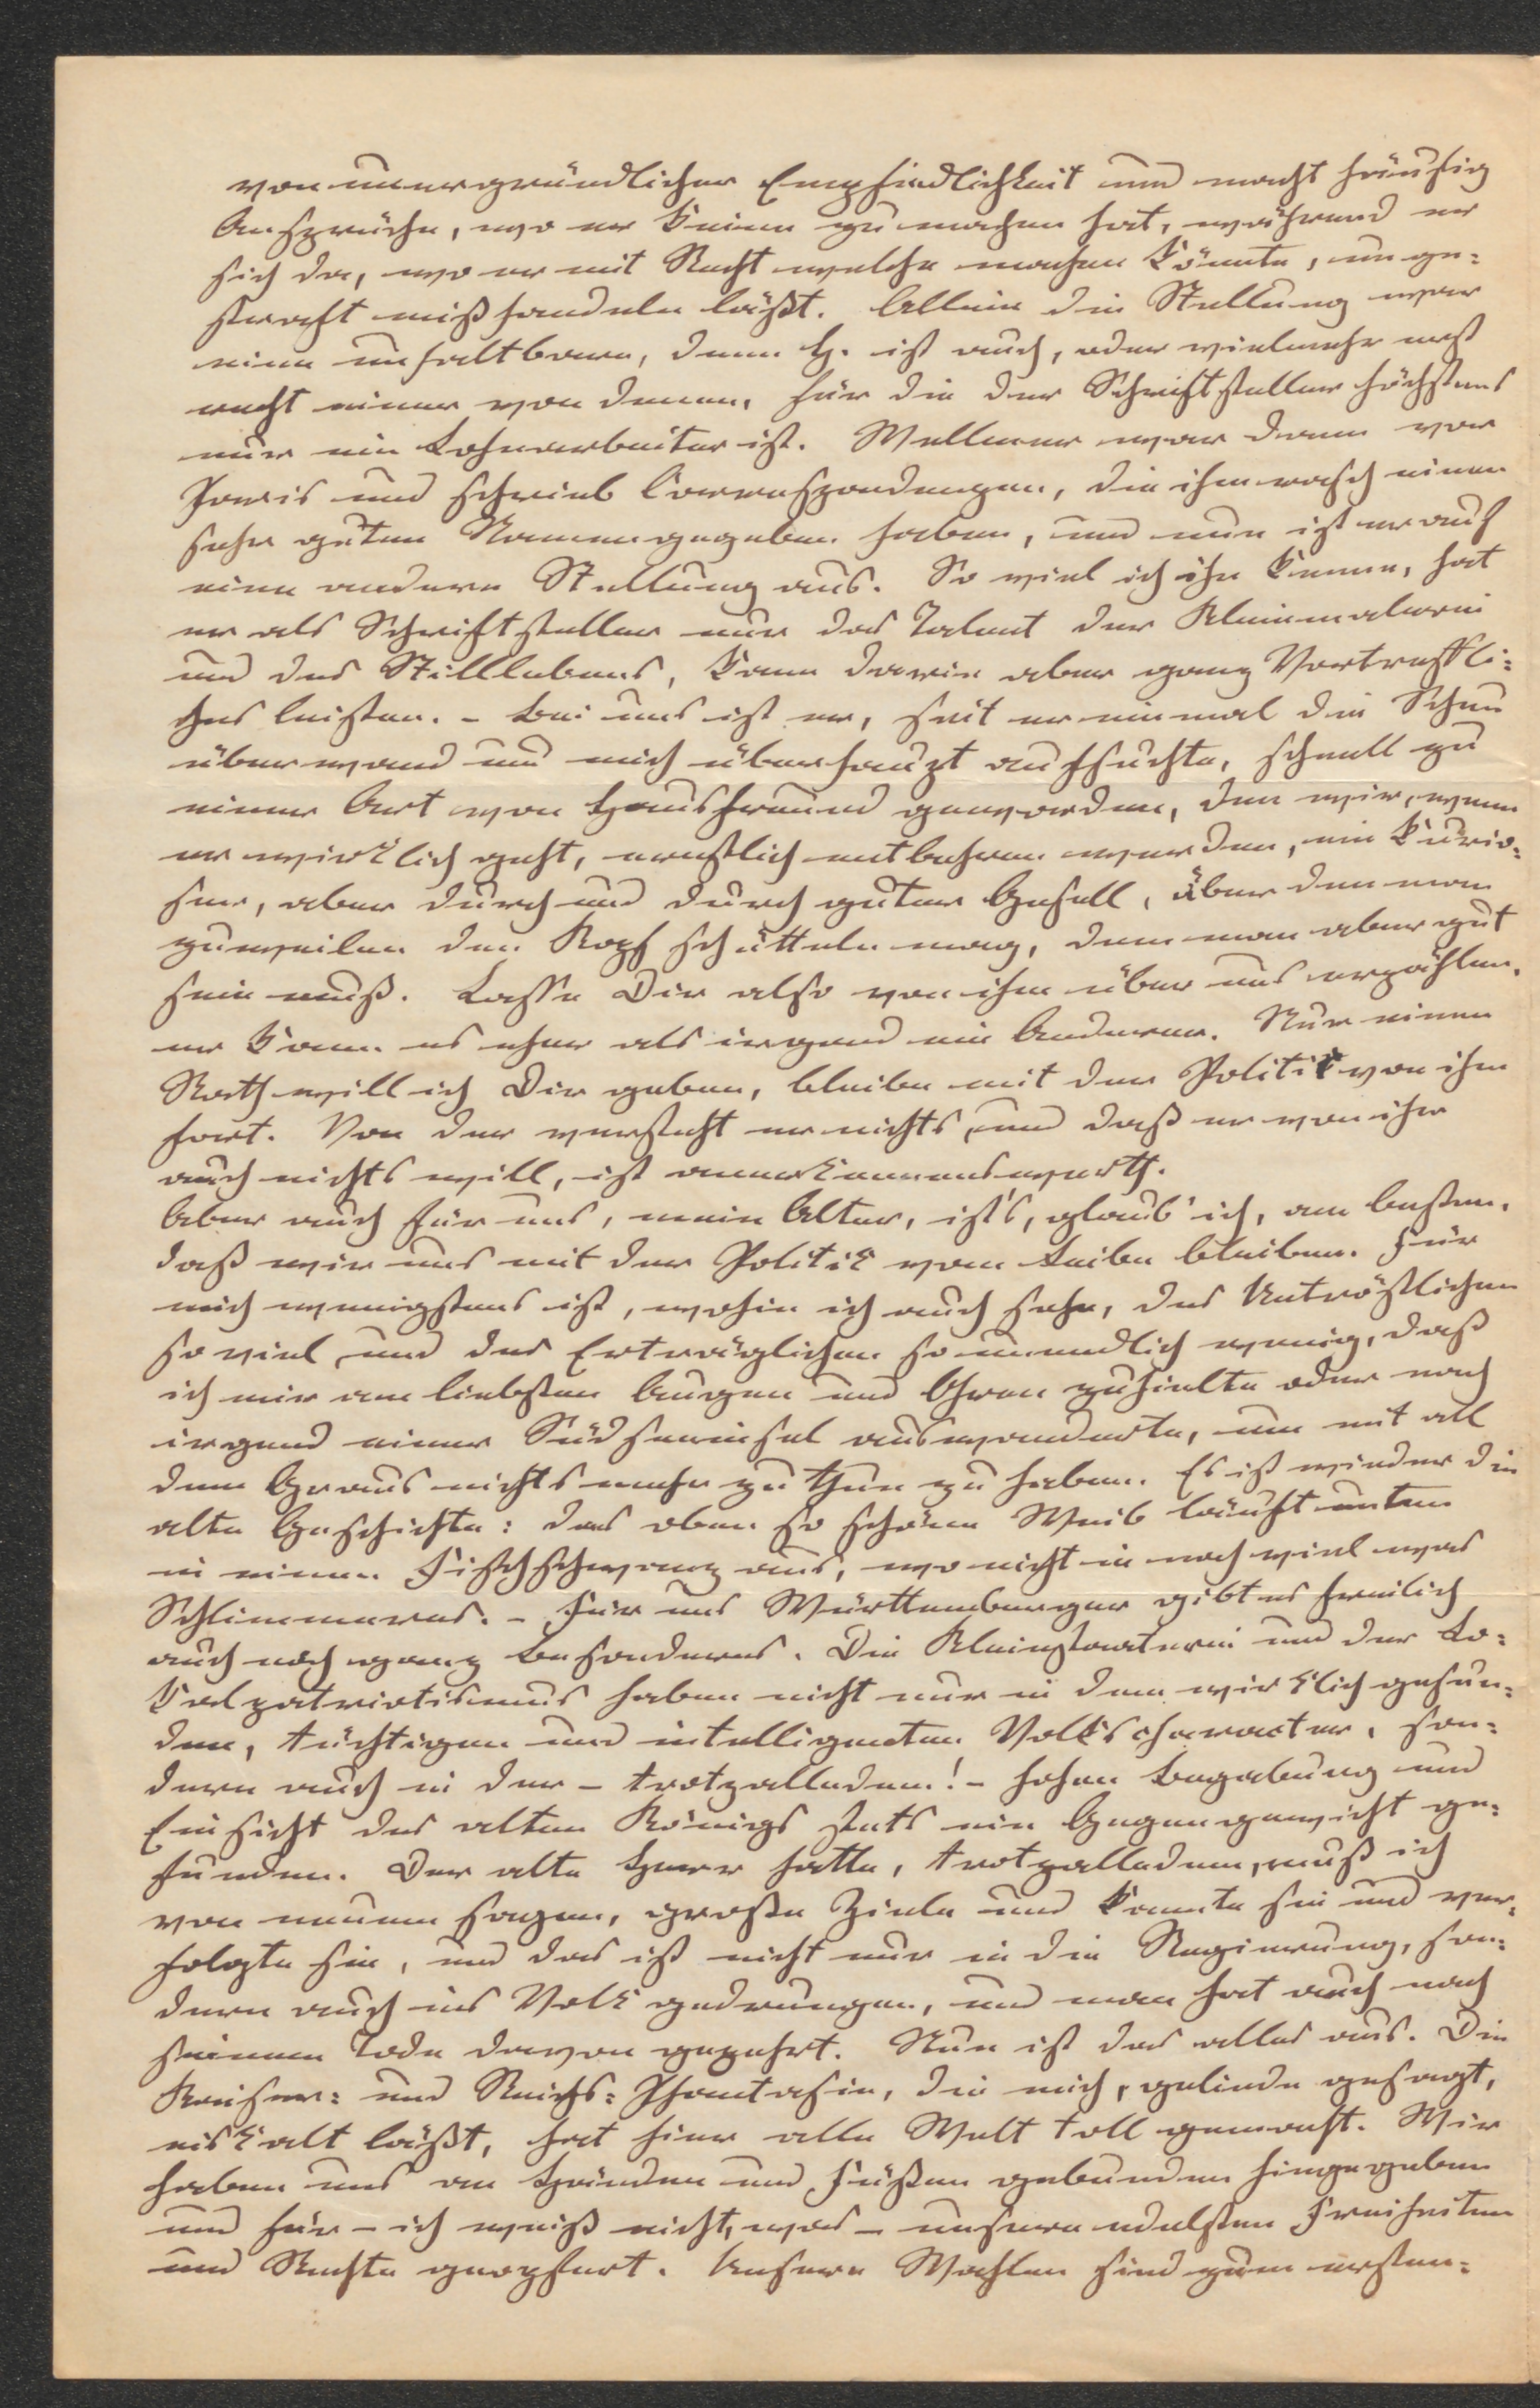 von unergründlicher Empfindlichkeit und macht häufig
Ansprüche, wo er keine zu machen hat, während er
sich da, wo er mit Recht welche machen könnte, unge-
straft mißhandeln läßt. Allein die Stellung war
eine unhaltbare, denn H. ist auch, oder vielmehr erst
recht einer von denen, für die der Schriftsteller höchstens
nur ein Lohnarbeiter ist. Wellmer war dann vor
Paris und schrieb Correspondenzen, die ihm rasch einen
sehr guten Namen gegeben haben, und nun ist er auf
eine andere Stellung aus. So viel ich ihn kenne, hat
er als Schriftsteller nur das Talent der Kleinmalerei
und des Stilllebens, kann darin aber ganz Vortreffli-
ches leisten. – Bei uns ist er, seit er einmal die Scheu
überwand und mich überhaupt aufsuchte, schnell zu
einer Art von Hausfreund geworden, den wir, wenn
er wirklich geht, ernstlich entbehren werden, ein kurio-
ser, aber durch und durch guter Gesell, über den man
zuweilen den Kopf schütteln mag, dem man aber gut
sein muß. Lasse Dir also von ihm über uns erzählen,
er kann es eher als irgend ein Anderer. Nur einen
Rath will ich Dir geben, bleibe mit der Politik von ihm
fort. Von der versteht er nichts, und daß er von ihr
auch nichts will, ist anerkennenswerth.
Aber auch für uns, mein Alter, ist's, glaub' ich, am besten,
daß wir uns mit der Politik vom Leibe bleiben. Für
mich wenigstens ist, wohin ich auch sehe, des Untröstlichen
so viel und des Erträglichen so unendlich wenig, daß
ich mir am liebsten Augen und Ohren zuhielte oder nach
irgend einer Südseeinsel auswanderte, um mit all
dem Graus nichts mehr zu thun zu haben. Es ist wieder die
alte Geschichte: das oben so schöne Weib läuft unten
in einen Fischschwanz aus, wo nicht in noch viel was
Schlimmeres. – Für uns Württemberger gibt es freilich
auch noch ganz Besonderes. Die Kleinstaaterei und der Lo-
kalpatriotismus haben nicht nur in dem wirklich gesun-
den, tüchtigen und intelligenten Volkscharacter, son-
dern auch in der – trotzalledem! – hohen Begabung und
Einsicht des alten Königs stets ein Gegengewicht ge-
funden. Der alte Herr hatte, trotzalledem, muß ich
von neuem sagen, große Ziele und kannte sie und ver-
folgte sie, und das ist nicht nur in die Regierung, son-
dern auch ins Volk gedrungen, und man hat auch nach
seinem Tode davon gezehrt. Nun ist das alles aus. Die
Kaiser- und Reichs-Phantasie, die mich, gelinde gesagt,
eiskalt läßt, hat hier alle Welt toll gemacht. Wir
haben uns an Händen und Füßen gebunden hingegeben
und für – ich weiß nicht, was – unsere edelsten Freiheiten
und Rechte geopfert. Unsere Wahlen sind zum ersten-